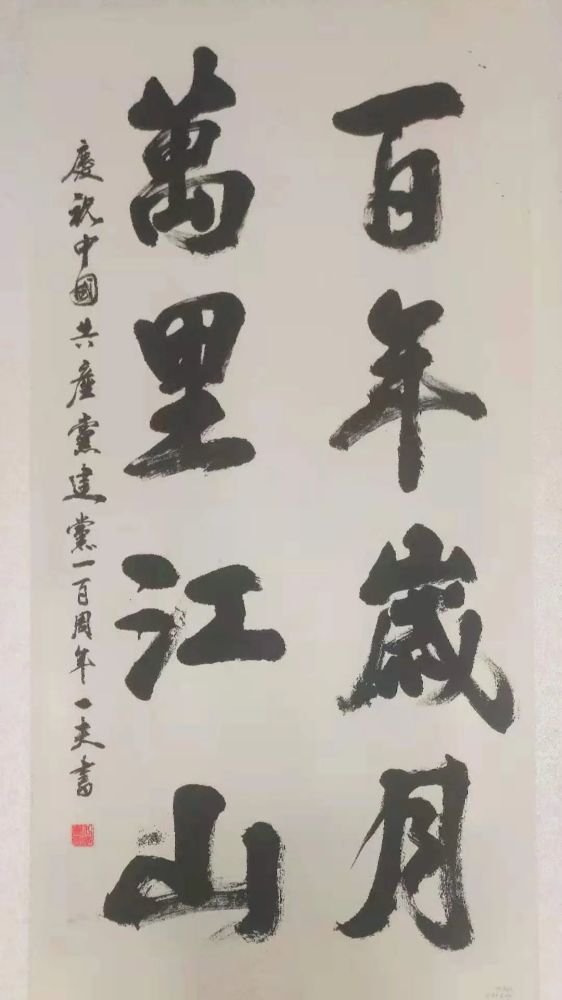 百年歲月
萬里江山
慶祝中國共產黨建黨一百周年一夫書